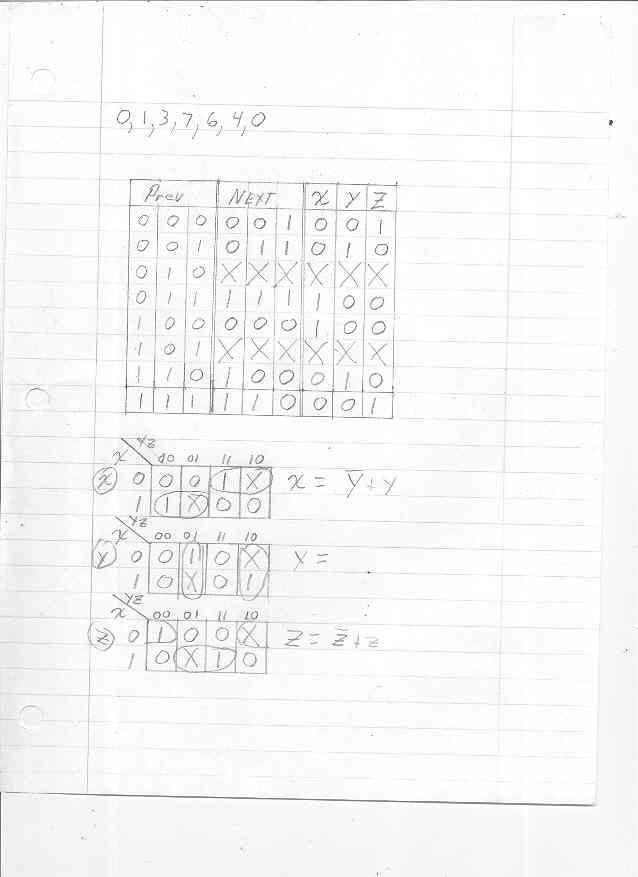 0, 1, 3, 7, 6, 4, 0
Prev NEXT X Y Z
0 0 0 0 0 1 0 0 1
0 0 1 0 1 1 0 1 0
0 1 0 X X X X X X
0 1 1 1 1 1 1 0 0
1 0 0 0 0 0 1 0 0
1 0 1 X X X X X X
1 1 0 1 0 0 0 1 0
1 1 1 1 1 0 0 0 1
YZ
X 00 01 11 10
X 0 0 0 1 X X = Y̅ + Y
1 1 X 0 0
YZ
X 00 01 11 10
Y 0 0 1 0 X Y =
1 0 X 0 1
YZ
X 00 01 11 10
Z 0 1 0 0 X Z = Z̅ + Z
1 0 X 1 0